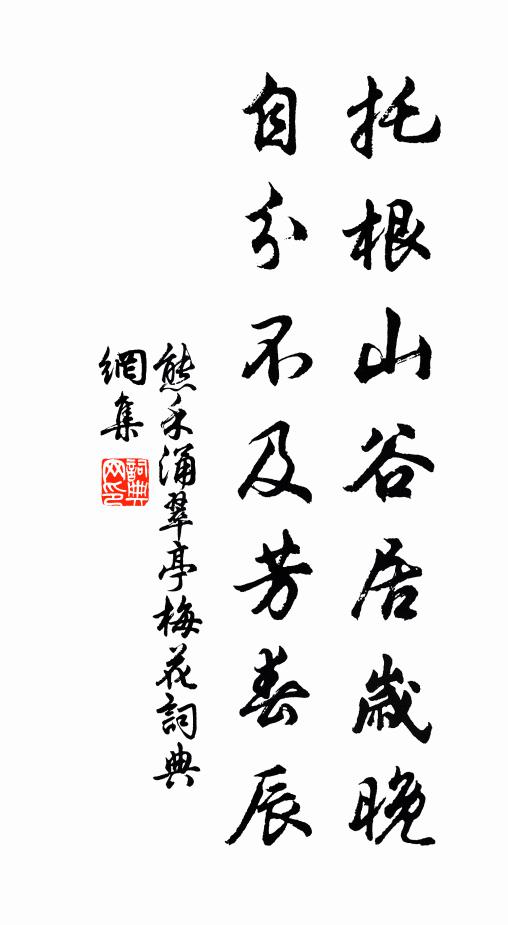 托根山谷居歲晚
自分不及芳春辰
熊禾涌翠亭梅花詞典
網集
詞典
网印